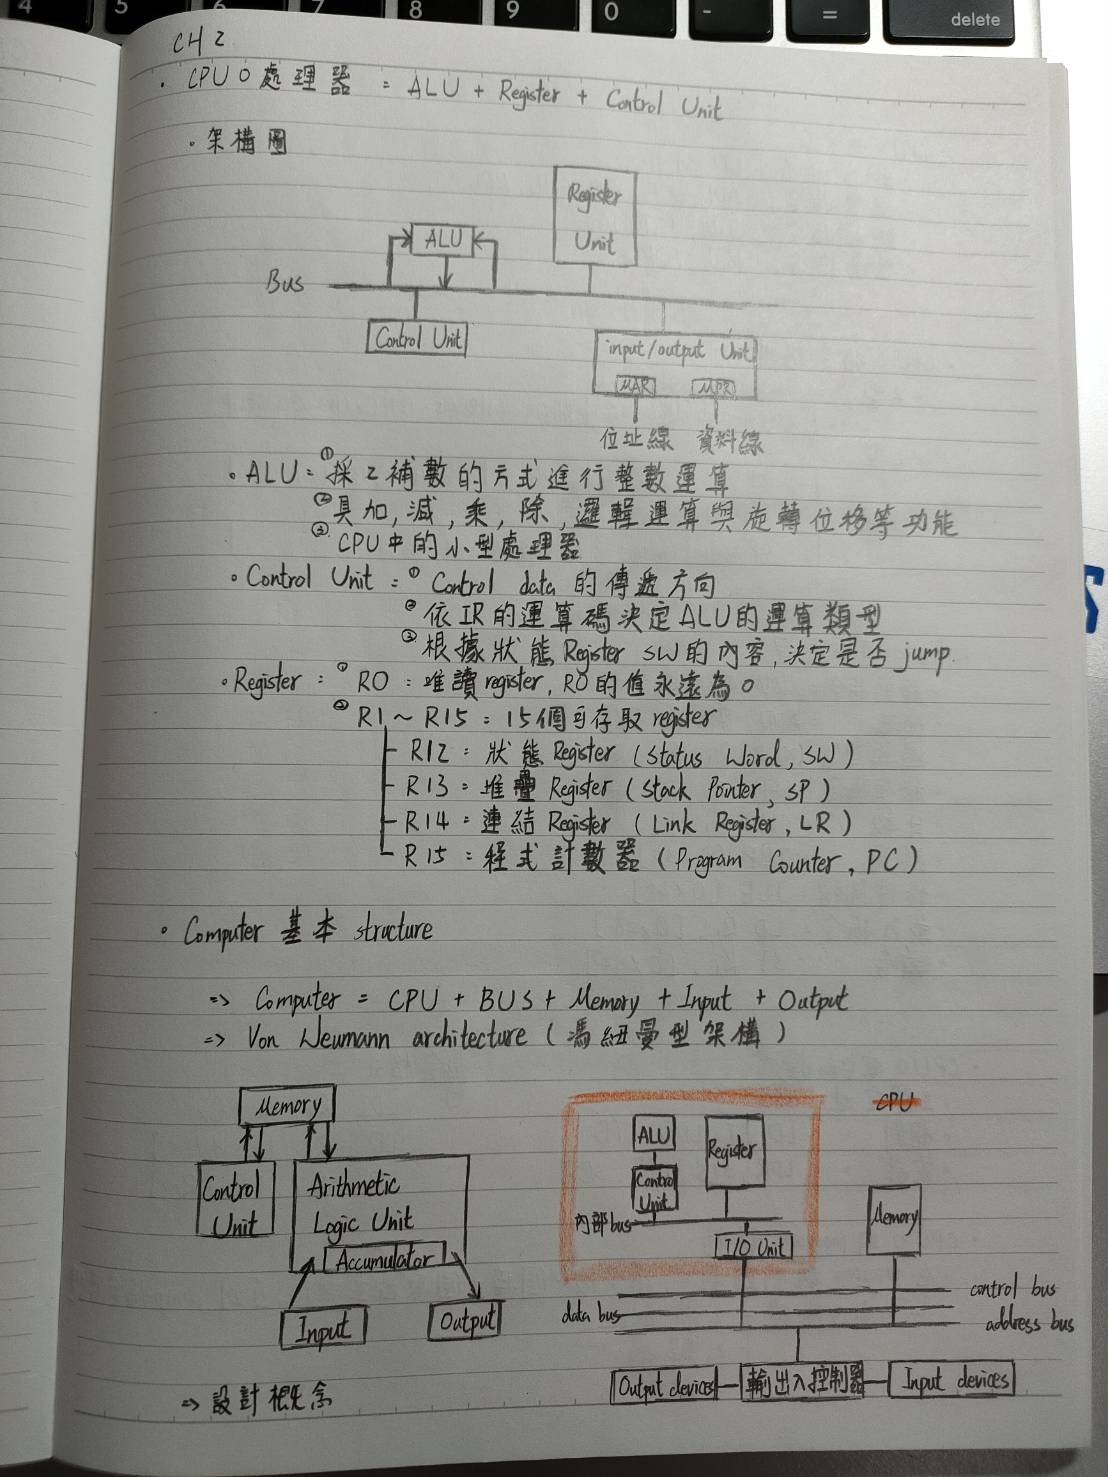 4 5 6 7 8 9 0 - = delete
CH 2
· CPU 0 處理器 = ALU + Register + Control Unit
· 架構圖
Register
Unit
ALU
Bus
Control Unit
input/output Unit
MAR MDR
位址線 資料線
· ALU = ① 採 2 補數的方式進行整數運算
② 具加, 減, 乘, 除, 邏輯運算與旋轉位移等功能
③ CPU中的小型處理器
· Control Unit = ① Control data 的傳遞方向
② 依 IR 的運算碼決定 ALU的運算類型
③ 根據狀態 Register SW 的內容, 決定是否 jump.
· Register = ① R0 : 唯讀 register, R0 的值永遠為 0
② R1 ~ R15 = 15個可存取 register
R12 : 狀態 Register (Status Word, SW)
R13 : 堆疊 Register (Stack Pointer, SP)
R14 : 連結 Register (Link Register, LR)
R15 : 程式計數器 (Program Counter, PC)
· Computer 基本 structure
=> Computer = CPU + BUS + Memory + Input + Output
=> Von Neumann architecture (馮紐曼型架構)
Memory
Control
Unit
Arithmetic
Logic Unit
Accumulator
Input
Output
CPU
ALU
Register
Control
Unit
內部 bus
I/O Unit
Memory
control bus
data bus
address bus
Output devices 輸出入控制器 Input devices
=> 設計概念